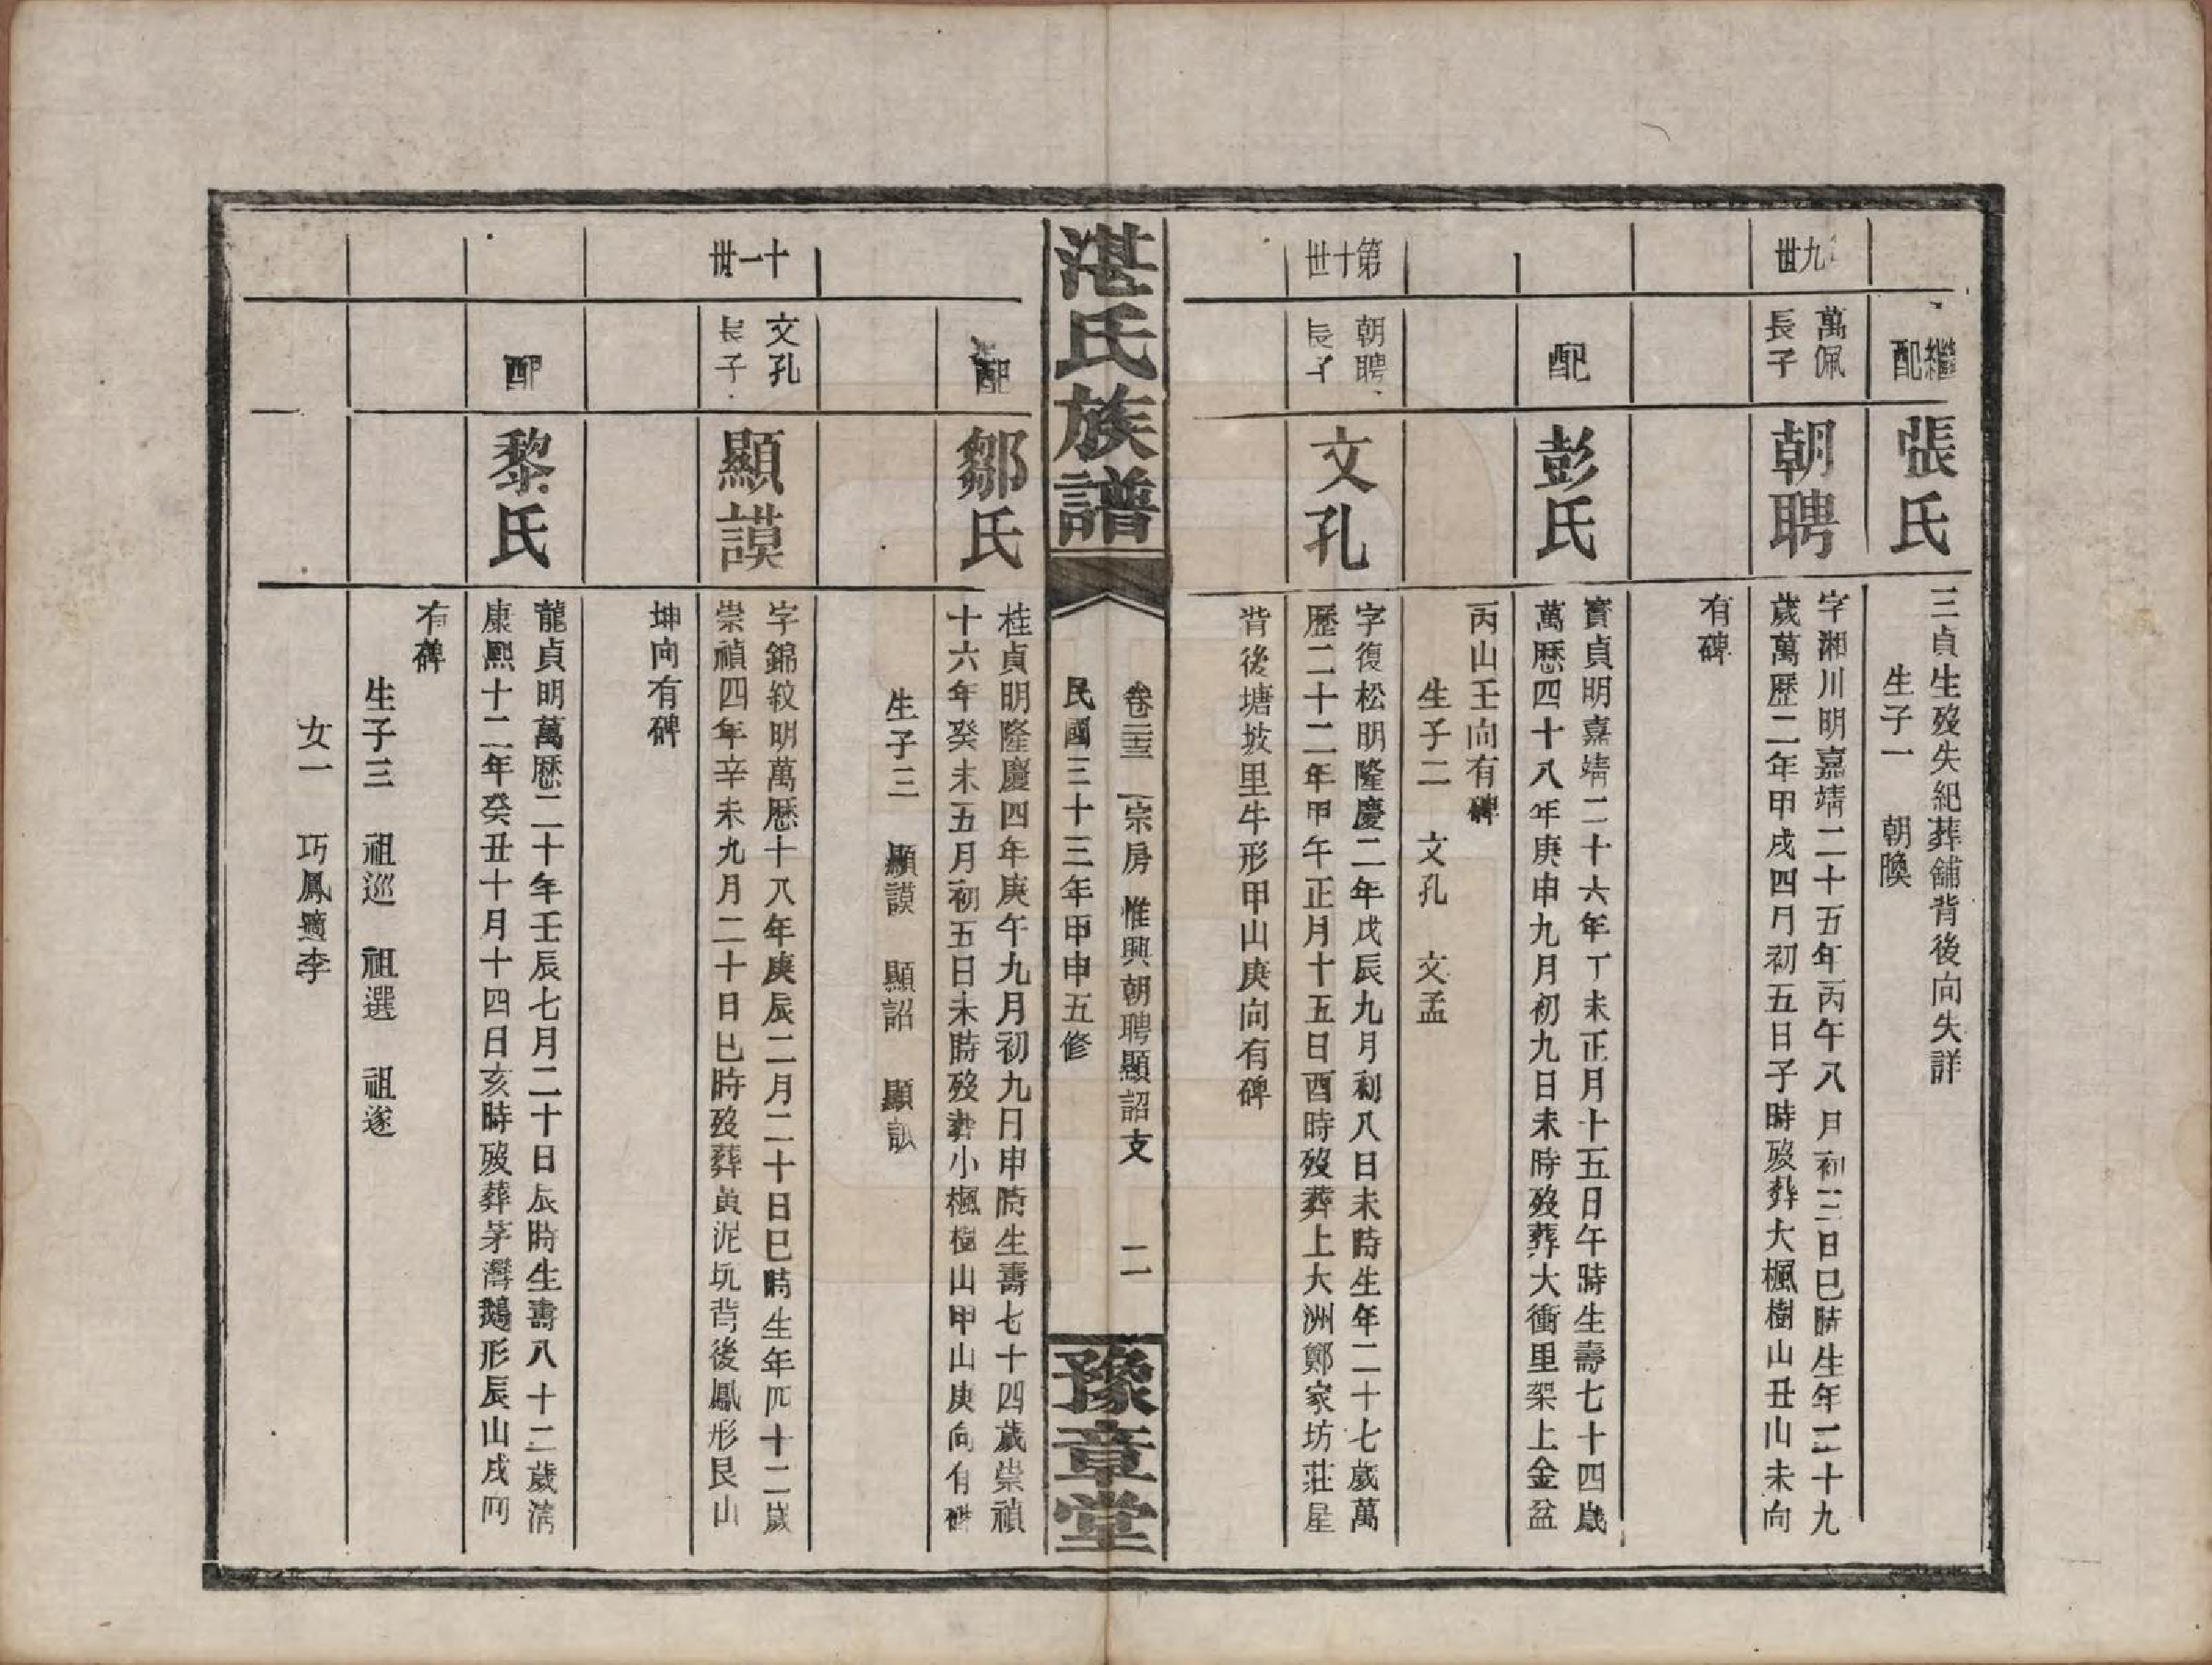 繼配
張氏
三貞生歿失紀葬舖背後向失詳
生子一 朝喚
九世
萬佩長子
朝聘
字湘川明嘉靖二十五年丙午八月初三日巳時生年二十九
歲萬歷二年甲戌四月初五日子時歿葬大楓樹山丑山未向
有碑
配
彭氏
實貞明嘉靖二十六年丁未正月十五日午時生壽七十四歲
萬歷四十八年庚申九月初九日未時歿葬大衝里架上金盆
丙山壬向有碑
生子二 文孔 文孟
第十世
朝聘長子
文孔
字復松明隆慶二年戊辰九月初八日未時生年二十七歲萬
歷二十二年甲午正月十五日酉時歿葬上大洲鄭家坊莊屋
背後塘坡里牛形甲山庚向有碑
湛氏族譜
卷二三 一宗房 惟興朝聘顯詔支 二
民國三十三年甲申五修
豫章堂
配
鄒氏
桂貞明隆慶四年庚午九月初九日申時生壽七十四歲崇禎
十六年癸未五月初五日未時歿葬小楓樹山甲山庚向有碑
生子三 顯謨 顯詔 顯訟
十一世
文孔長子
顯謨
字錦紋明萬歷十八年庚辰二月二十日巳時生年四十二歲
崇禎四年辛未九月二十日巳時歿葬黃泥坑背後鳳形艮山
坤向有碑
配
黎氏
龍貞明萬歷二十年壬辰七月二十日辰時生壽八十二歲清
康熙十二年癸丑十月十四日亥時歿葬茅灣鵝形辰山戌向
有碑
生子三 祖巡 祖選 祖遂
女一 巧鳳適李